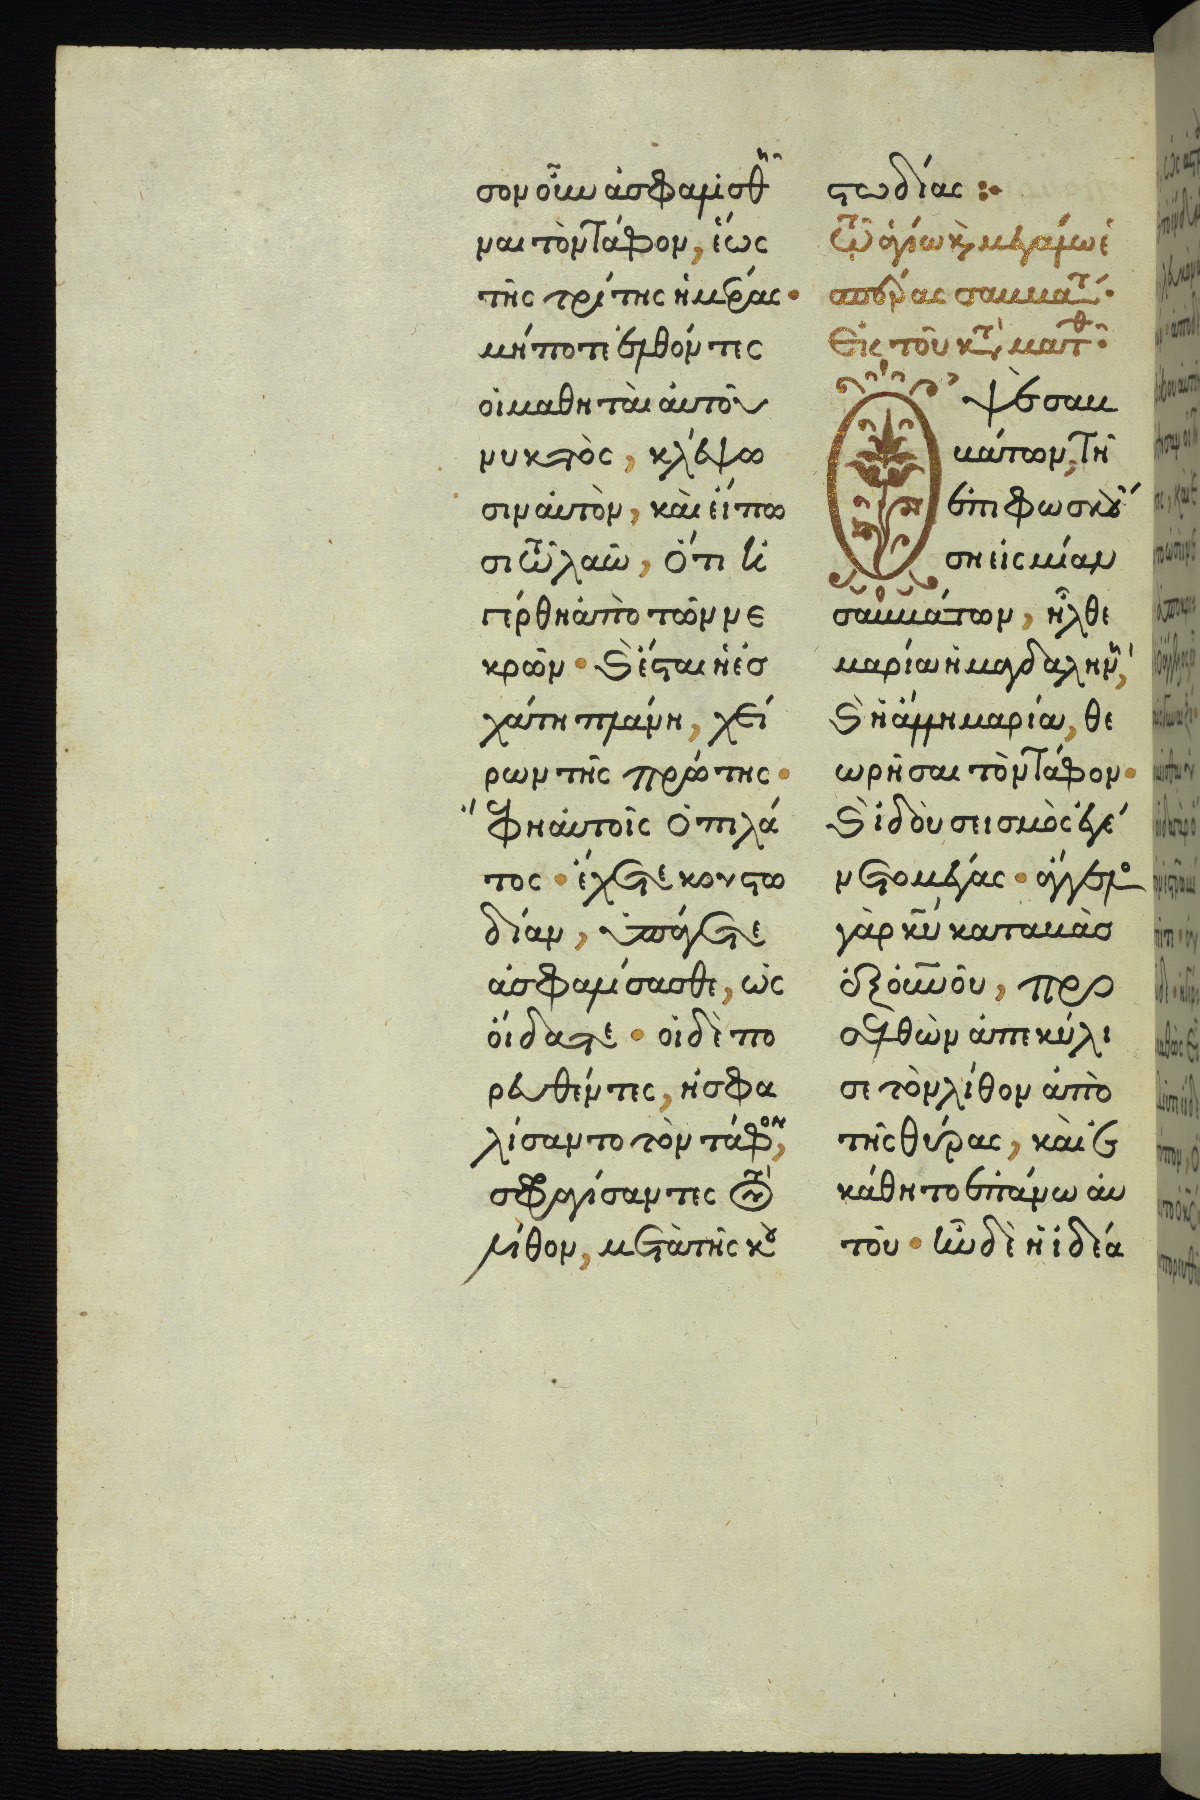 σον οὖν ἀσφαλισθῆ
ναι τὸν τάφον, ἕως
τῆς τρίτης ἡμέρας·
μήποτε ἐλθόντες
οἱ μαθηταὶ αὐτοῦ
νυκτὸς, κλέψω
σιν αὐτὸν, καὶ εἴπω
σι τῷ λαῷ, ὅτι ἠ
γέρθη ἀπὸ τῶν νε
κρῶν· καὶ ἔσται ἡ ἐσ
χάτη πλάνη, χεί
ρων τῆς πρώτης·
Ἔφη αὐτοῖς ὁ πιλᾶ
τος· ἔχετε κουστω
δίαν, ὑπάγετε
ἀσφαλίσασθε, ὡς
οἴδατε· οἱ δὲ πο
ρευθέντες, ἠσφα
λίσαντο τὸν τάφον,
σφραγίσαντες τὸν
λίθον, μετὰ τῆς κου
στωδίας:
Τῷ ἁγίῳ καὶ μεγάλῳ ἑ
σπέρας σαββάτ·
Ἐκ τοῦ κατ ματθ·
Ὀψὲ σαβ
βάτων, τῇ
ἐπιφωσκού
σῃ εἰς μίαν
σαββάτων, ἦλθε
μαρία ἡ μαγδαληνὴ,
καὶ ἡ ἄλλη μαρία, θε
ωρῆσαι τὸν τάφον·
καὶ ἰδοὺ σεισμὸς ἐγέ
νετο μέγας· ἄγγελος
γὰρ κυ καταβὰσ
ἐξ οὐνοῦ, προ
σελθὼν ἀπεκύλι
σε τὸν λίθον ἀπὸ
τῆς θύρας, καὶ ἐ
κάθητο ἐπάνω αὐ
τοῦ· ἦν δὲ ἡ ἰδέα